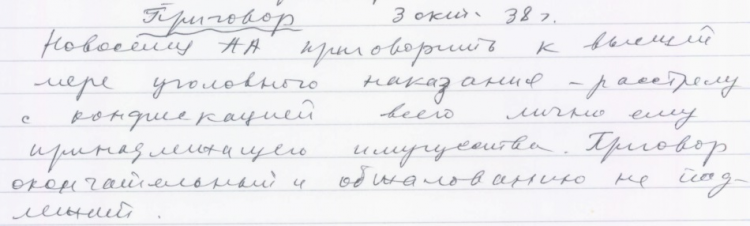 Приговор 3 окт. 38 г.
Новосёлец АА приговорить к высшей
мере уголовного наказания – расстрелу
с конфискацией всего лично ему
принадлежащего имущества. Приговор
окончательный и обжалованию не под-
лежит.